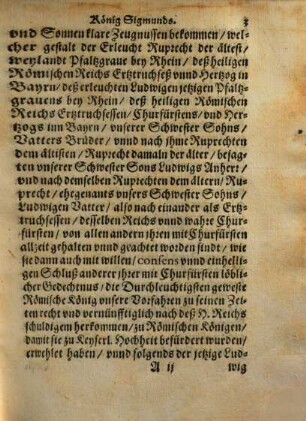 König Sigmunds. 3
vnd Sonnenklare Zeugnussen bekommen/ wel-
cher gestalt der Erleucht Ruprecht der ältest/
weylandt Pfaltzgraue bey Rhein/ deß heiligen
Römischen Reichs Ertztruchseß vnnd Hertzog in
Bayrn/ deß erleuchten Ludwigen jetzigen Pfaltz-
grauens bey Rhein/ deß heiligen Römischen
Reichs Ertztruchsessen/ Churfürstens/ vnd Her-
tzogs inn Bayrn/ vnserer Schwester Sohns/
Vatters Brüder/ vnnd nach jhme Ruprechten
dem ältisten/ Ruprecht damaln der älter/ besag-
ten vnserer Schwester Sons Ludwigs Anherr/
vnd nach demselben Ruprechten dem ältern/ Ru-
precht/ ehegenants vnsers Schwester Sohns/
Ludwigen Vatter/ also nach einander als Ertz-
truchsessen/ desselben Reichs vnnd wahre Chur-
fürsten/ von allen andern jhren mit Churfürsten
allzeit gehalten vnnd geachtet worden sindt/ wie
sie dann auch mit willen/ consens vnnd einhelli-
gen Schluß anderer jhrer mit Churfürsten löbli-
cher Gedechtnus/ die Durchleuchtigsten geweste
Römische König vnsere Vorfahren zu seinen Zei-
ten recht vnd vernünfftiglich nach deß H. Reichs
schuldigem herkommen/ zu Römischen Königen/
damit sie zu Keyserl. Hochheit befürdert wurden/
erwehlet haben/ vnnd folgends der jetzige Lud-
A ij wig